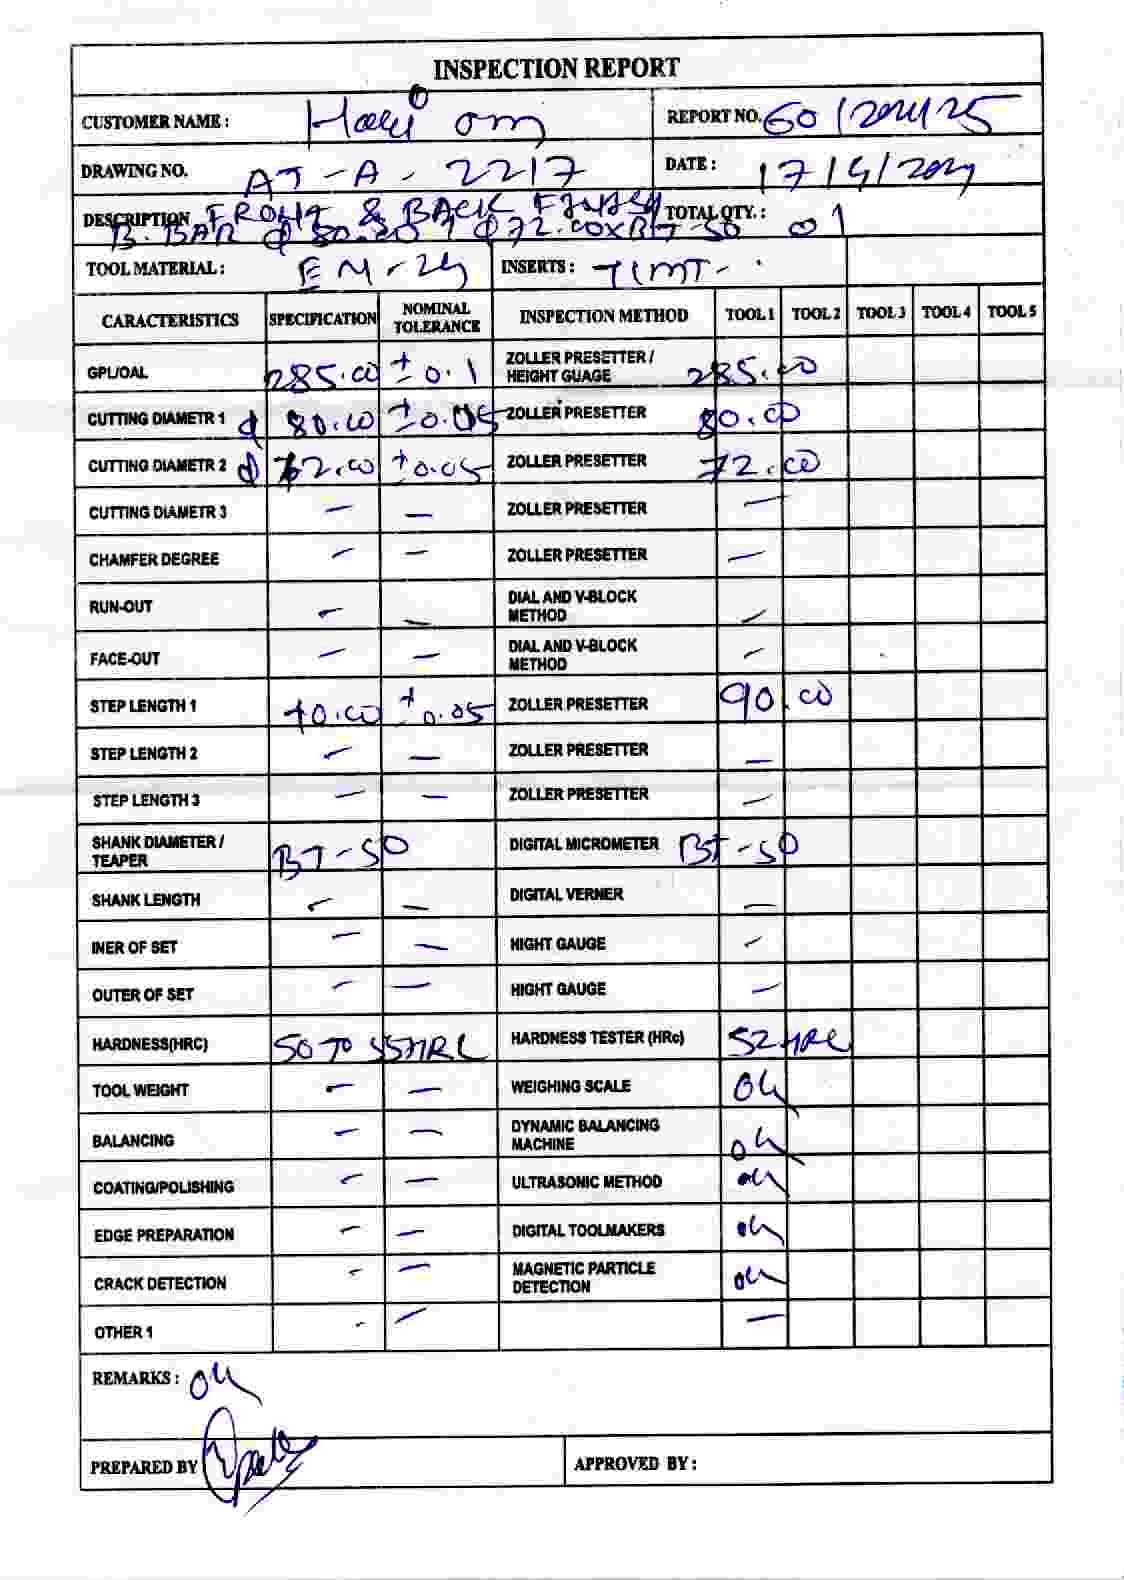 INSPECTION REPORT
CUSTOMER NAME : Hari om
REPORT NO. 60/2024/25
DRAWING NO. AT-A-2217
DATE : 17/ /2024
DESCRIPTION FRONT & BACK
B. BAR Ø 80.00 Ø72.00xBT-50
TOTAL QTY. : 01
TOOL MATERIAL : EN-24 INSERTS : TCMT-
CARACTERISTICS SPECIFICATION NOMINAL TOLERANCE INSPECTION METHOD TOOL 1 TOOL 2 TOOL 3 TOOL 4 TOOL 5
GPL/OAL 285.00 ±0.1 ZOLLER PRESETTER / HEIGHT GUAGE 285.00
CUTTING DIAMETR 1 Ø 80.00 ±0.05 ZOLLER PRESETTER 80.00
CUTTING DIAMETR 2 Ø 72.00 ±0.05 ZOLLER PRESETTER 72.00
CUTTING DIAMETR 3 – – ZOLLER PRESETTER –
CHAMFER DEGREE – – ZOLLER PRESETTER –
RUN-OUT – – DIAL AND V-BLOCK METHOD –
FACE-OUT – – DIAL AND V-BLOCK METHOD –
STEP LENGTH 1 ±0.05 ZOLLER PRESETTER 90.00
STEP LENGTH 2 – – ZOLLER PRESETTER –
STEP LENGTH 3 – – ZOLLER PRESETTER –
SHANK DIAMETER / TEAPER BT-50 DIGITAL MICROMETER BT-50
SHANK LENGTH – – DIGITAL VERNER –
INER OF SET – – HIGHT GAUGE –
OUTER OF SET – – HIGHT GAUGE –
HARDNESS(HRC) 50 TO 55HRC HARDNESS TESTER (HRc) 52 HRC
TOOL WEIGHT – – WEIGHING SCALE OK
BALANCING – – DYNAMIC BALANCING MACHINE OK
COATING/POLISHING – – ULTRASONIC METHOD OK
EDGE PREPARATION – – DIGITAL TOOLMAKERS OK
CRACK DETECTION – – MAGNETIC PARTICLE DETECTION OK
OTHER 1 – – –
REMARKS : OK
PREPARED BY
APPROVED BY :